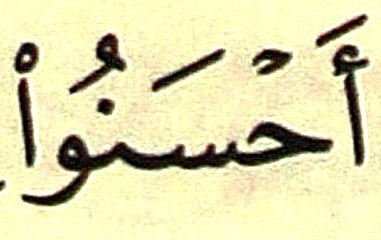 أَحْسَنُوا۟